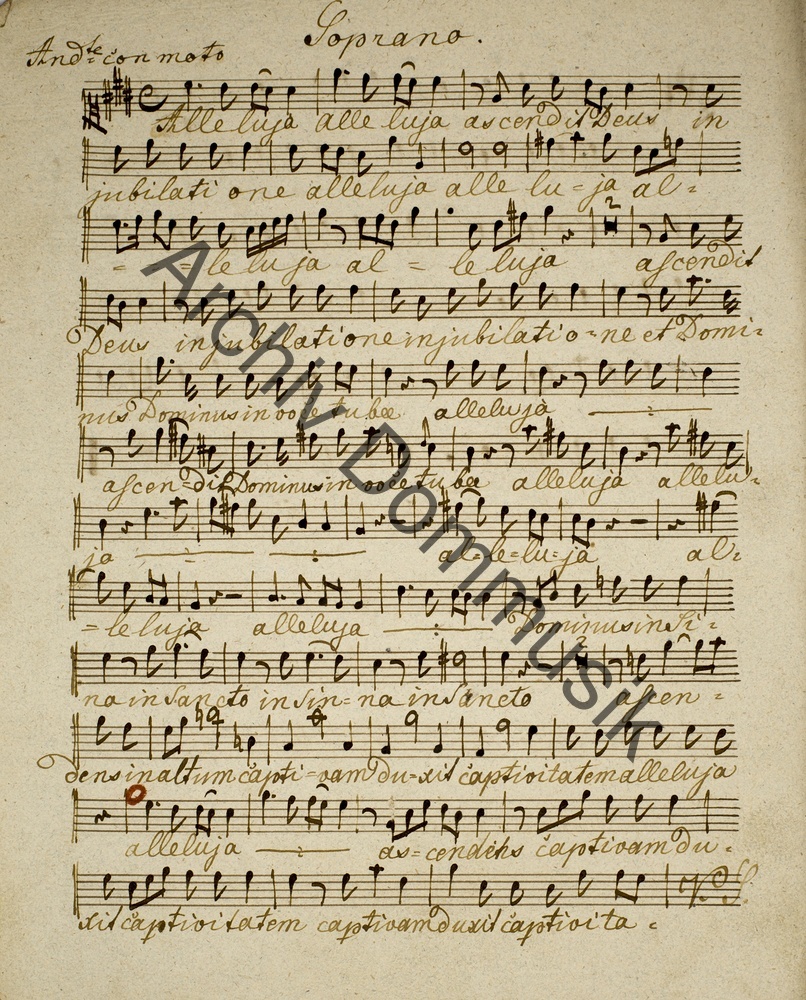 Soprano.
And.te con moto
Alleluja alleluja ascendit Deus in
jubilati one alleluja alle lu = ja al =
2
= = le lu ja al = le luja ascendit
Deus in jubilatione in jubilati o = ne et Domi =
nus Dominus in voce tubae alleluja
ascen = dit Dominus in voce tubae alleluja allelu =
ja al = le = lu = ja al =
= leluja alleluja Dominus in Si =
2
na in Sancto in Sin = na in Sancto ascen =
dens in altum capti = vam du = xit captivitatem alleluja
alleluja as = cendens captivam du =
xit captivitatem captivam duxit captivi ta =
V. S.
Archiv Dommusik